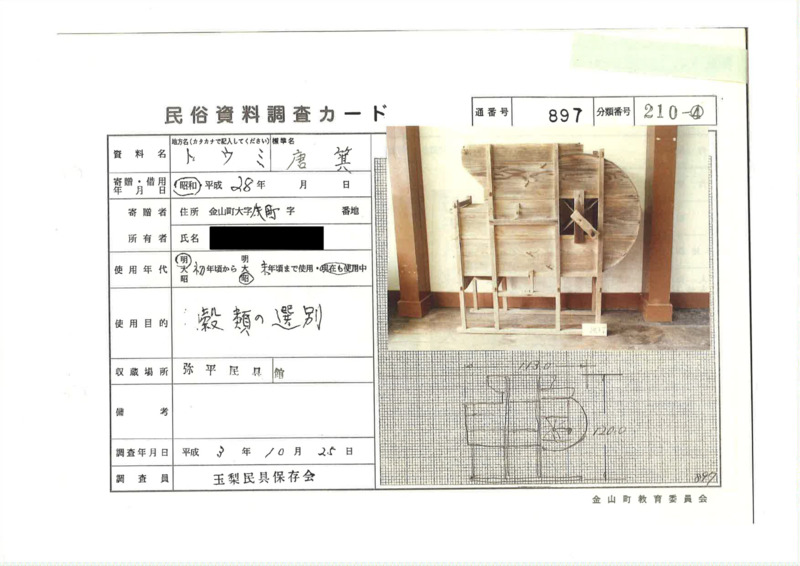 民俗資料調査カード
通番号 897 分類番号 210-④
資料名 地方名(カタカナで記入してください) 標準名
トウミ 唐箕
寄贈・借用年月日 昭和 平成 28年 月 日
寄贈者 住所 金山町大字 字 番地
所有者 氏名
使用年代 明大昭 初年頃から 明大昭 末年頃まで使用・現在も使用中
使用目的 穀類の選別
収蔵場所 弥平民具館
備考
調査年月日 平成 3 年 10 月 25 日
調査員 玉梨民具保存会
113.0
120.0
897
金山町教育委員会